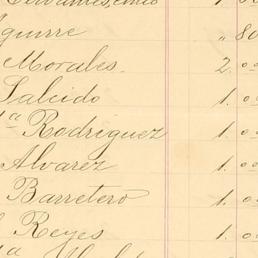 Cervantes,
Aguirre " 80
Morales. 2. 00
Salcido 1. 00
Ma Rodriguez 1. 00
Alvarez 1. 00
Barretero 1. 00
Reyes 1. 00